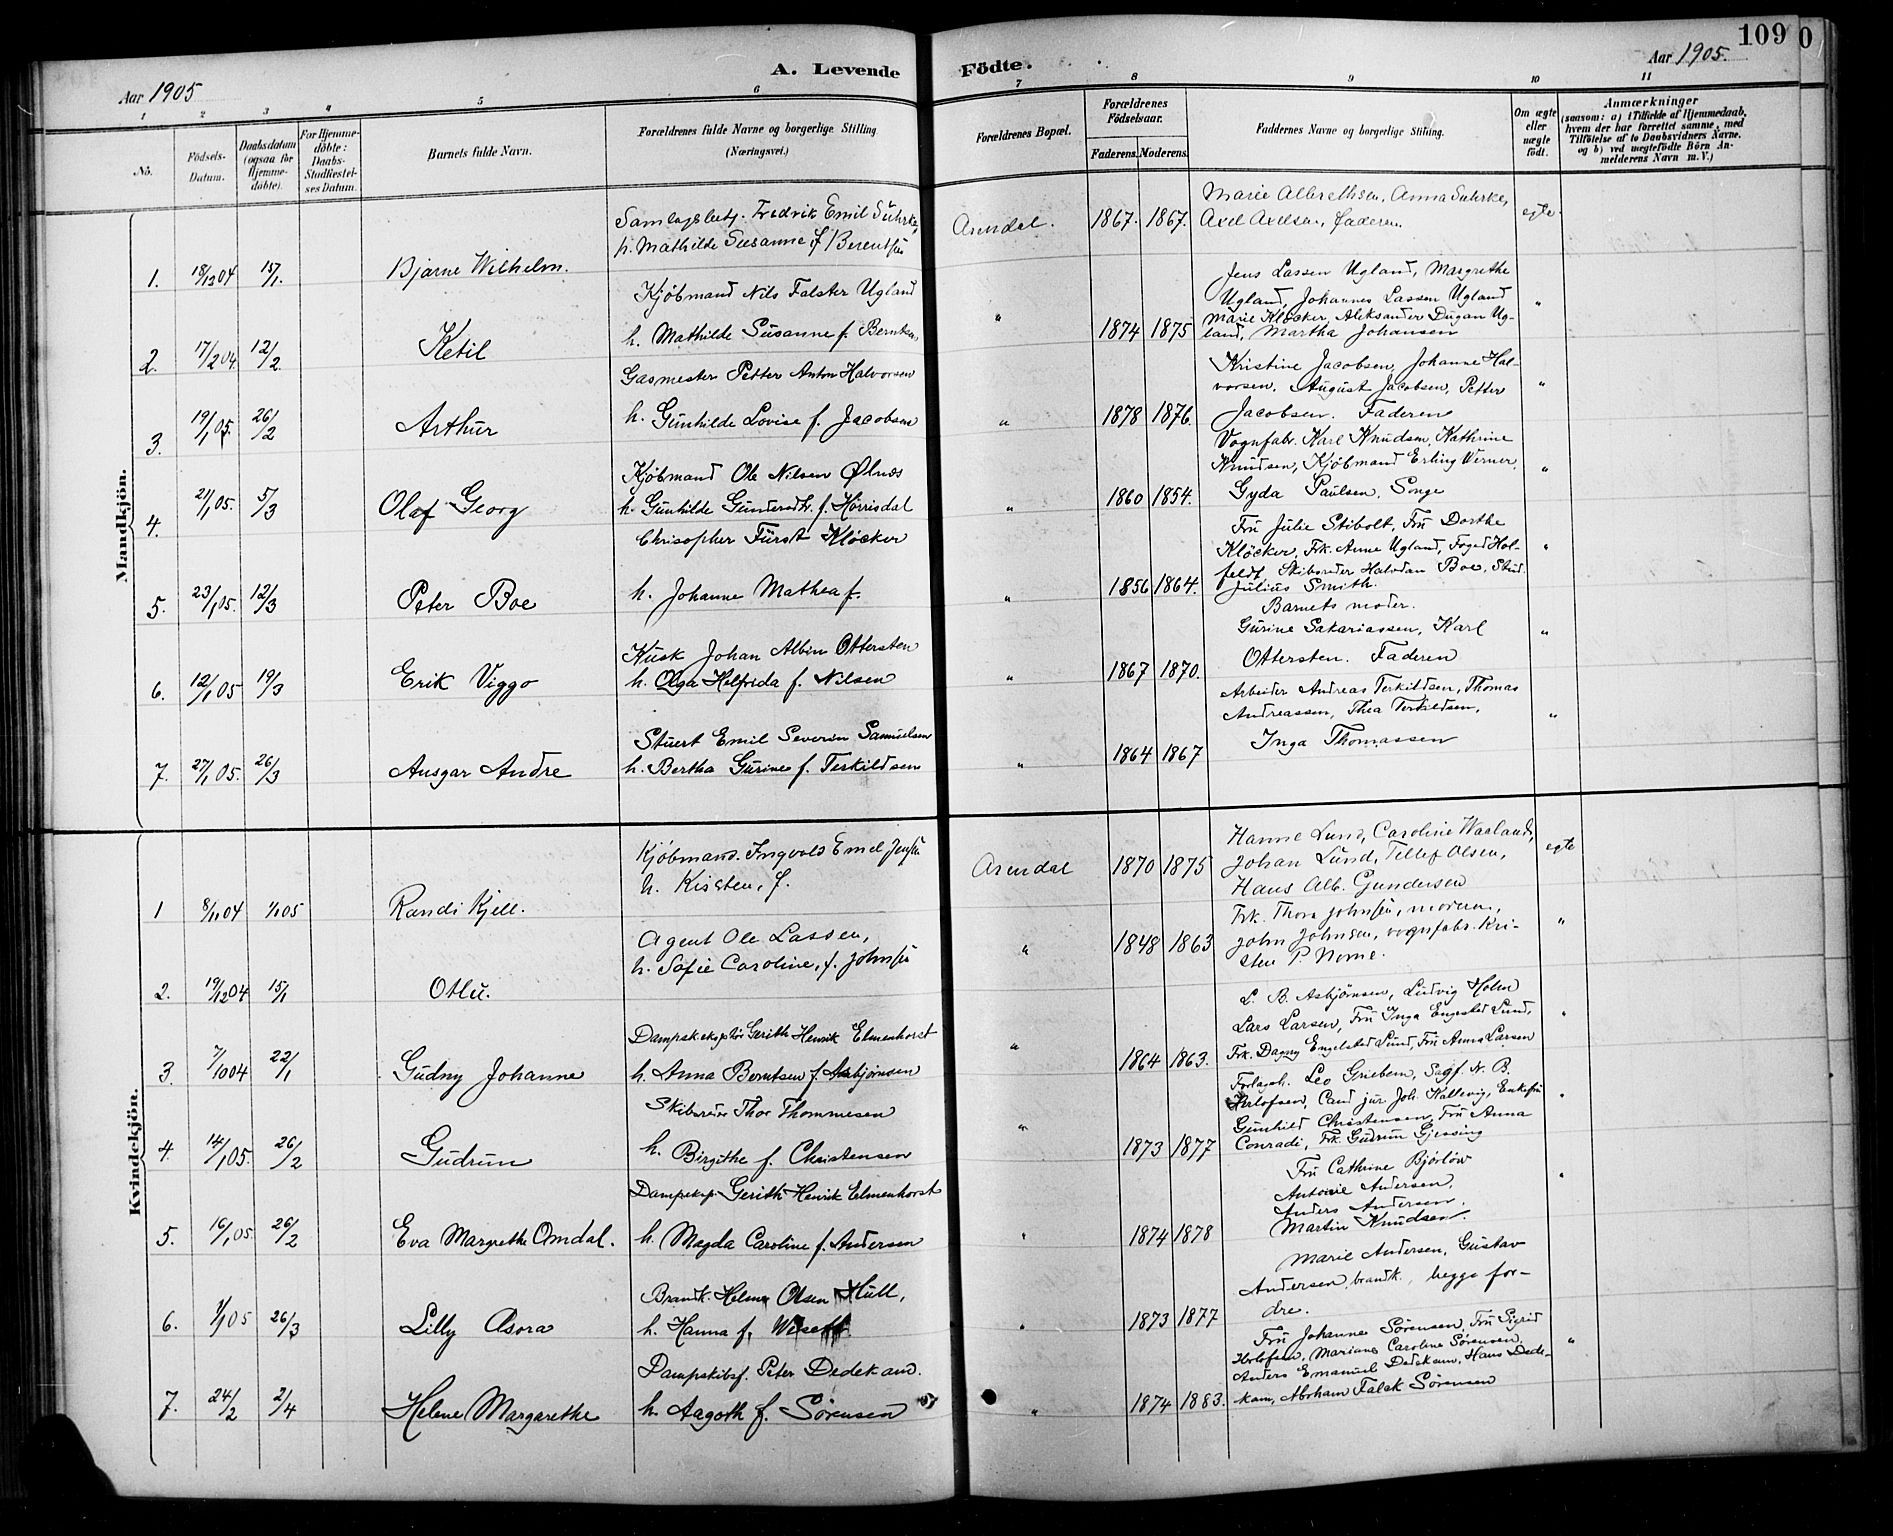 109
0
Aar 1905
A. Levende
Födte.
Aar 1905.
1
2
3
4
5
6
7
8
9
10
11
No.
Födsels-
Datum.
Daabsdatum
(ogsaa for
Hjemme-
döbte).
For Hjemme-
döbte:
Daabs-
Stadfæstel-
ses Datum.
Barnets fulde Navn.
Forældrenes fulde Navne og borgerlige Stilling
(Næringsvei.)
Forældrenes Bopæl.
Forældrenes
Födselsaar.
Faderens. Moderens.
Faddernes Navne og borgerlige Stilling.
Om ægte
eller
uægte
födt.
Anmærkninger
(saasom: a) i Tilfælde af Hjemmedaab,
hvem der har forrettet samme, med
Tilföielse af to Daabsvidners Navne.
og b) ved uægtefödte Börn An-
melderens Navn m. V.)
Mandkjön.
1. 18/12 04 15/1. Bjarne Wilhelm.
Samlagsbetj. Fredrik Emil Suhrke,
h. Mathilde Susanne f/ Berentsen
Arendal. 1867. 1867.
Marie Albrethsen, Anna Suhrke,
Axel Axelsen, Faderen.
egte.
2. 17/2 04. 12/2. Ketil
Kjöbmand Nils Falster Ugland
h. Mathilde Susanne f. Berntsen
" 1874 1875
Jens Lassen Ugland, Margrethe
Ugland, Johannes Lassen Ugland
Marie Klöcker, Aleksander Dugan Ug-
land, Martha Johansen
"
3. 19/1 05. 26/2 Arthur
Gasmester Petter Anton Halvorsen
h. Gunhilde Lovise f. Jacobsen
" 1878 1876.
Kristine Jacobsen, Johanne Hal-
vorsen, August Jacobsen, Petter
Jacobsen. Faderen
"
4. 21/1 05. 5/3 Olaf Georg
Kjöbmand Ole Nilsen Ølnes
h. Gunhilde Gundersdtr. f. Hörrisdal
" 1860 1854.
Vognfabr. Karl Knudsen, Kathrine
Knudsen, Kjöbmand Erling Werner,
Gyda Paulsen, Songe
"
5. 23/1 05. 12/3 Peter Boe
Chrisopher Fürst Klöcker
h. Johanne Mathea f.
" 1856 1864.
Fru Julie Stibolt, Fru Dorthe
Klöcker, Frk. Anne Ugland, Foged Hol-
feldt Skibsreder Halvdan Boe, Stud.
Julius Smith.
"
6. 12/1 05 19/3 Erik Viggo
Kusk Johan Albin Ottersten
h. Olga Helfrida f. Nilsen
" 1867 1870.
Barnets moder.
Gurine Sakariassen, Karl
Ottersten. Faderen
"
7. 27/1 05. 26/3 Ansgar Andre
Stuert Emil Severin Samuelsen
h. Bertha Gurine f. Terkildsen
" 1864 1867
Arbeider Andreas Terkildsen, Thomas
Andreassen, Thea Terkildsen,
Inga Thomassen
"
Kvindekjön.
1 8/11 04 1/1 05 Randi Kjell.
Kjöbmand. Ingvald Emil Jensen
h. Kirsten, f.
Arendal 1870 1875
Hanne Lund, Caroline Waaland,
Johan Lund, Tellef Olsen,
Hans Alb. Gundersen
egte
2. 19/12 04 15/1 Otlu.
Agent Ole Lassen,
h. Sofie Caroline, f. Johnsen
" 1848 1863
Frk. Thora Johnsen, moderen,
John Johnsen, vognfabr. Kri-
sten P. Norne.
"
3. 7/10 04 22/1 Gudny Johanne
Dampskeksptör Gerith Henrik Elmenhorst
h. Anna Berntsen f. Asbjørnsen
" 1864 1863.
L. B. Asbjørnsen, Ludvig Holm
Lars Larsen, Fru Inga Engestad Lund,
Frk. Dagny Engelstad Lund, Fru Anna Larsen
"
4. 14/1 05. 26/2 Gudrun
Skibsreder Thor Thommesen
h. Birgithe f. Christensen
" 1873 1877
Forlagsh. Leo Griebem, Sagf. N. B.
Herlofsen, Cand jur. Joh. Kallevig, Enkefru
Gunhild Christensen, Fru Anna
Conradi, Frk. Gudrun Gjessing
"
5. 16/1 05. 26/2 Eva Margrethe Omdal.
Dampskp. Gerith Henrik Elmenhorst
h. Magda Caroline f. Andersen
" 1874 1878
Fru Cathrine Bjorlöw
Antonie Andersen,
Anders Andersen.
Martin Knudsen.
"
6. 1/1 05 26/3 Lilly Asora
Brandk. Helmer Olsen Hull,
h. Hanna f.
" 1873 1877
Marie Andersen, Gustav
Andersen brandk., begge for-
dre.
7. 24/2 2/4 Helene Margarethe
Dampskibsf. Peter Dedekam.
h. Aagoth f. Sørensen
" 1874 1883.
Fru Johanne Sørensen, Fru Sigrid
Herlofsen, Mariane Caroline Sørensen,
Anders Emanuel Dedekam, Hans Dede-
kam, Abraham Falck Sørensen
"